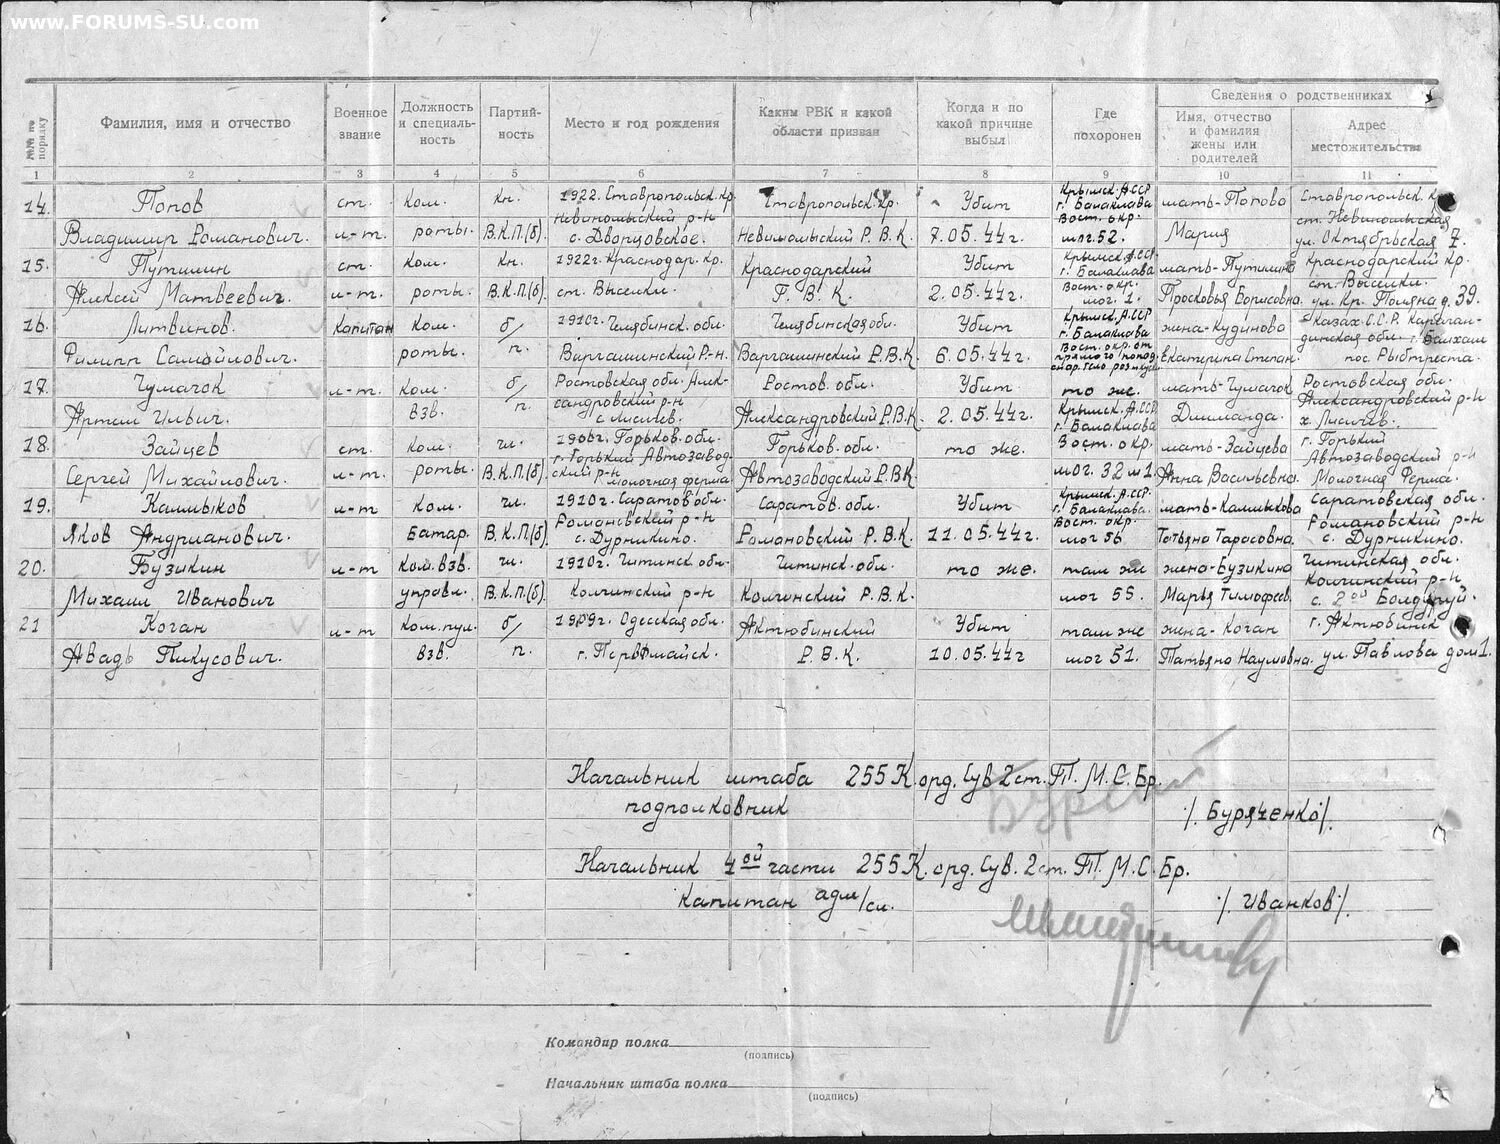 www.FORUMS-SU.com
№№ по порядку
Фамилия, имя и отчество
Военное звание
Должность и специальность
Партийность
Место и год рождения
Каким РВК и какой области призван
Когда и по какой причине выбыл
Где похоронен
Сведения о родственниках
Имя, отчество и фамилия жены или родителей
Адрес местожительства
1 2 3 4 5 6 7 8 9 10 11
14. Попов ст. Ком. Кн. 1922. Ставропольск. кр. Ставропольск. кр. Убит Крымск. АССР г. Балаклава мать-Попова Ставропольск. кр.
Владимир Романович. л-т. роты. В.К.П.(б) Невиномыский р-н с. Дворцовское. Невиномыский Р.В.К. 7.05.44г. Вост. окр. мог. 52. Мария ст. Невиномыская ул. Октябрьская 7.
15. Путилин ст. Ком. Кн. 1922г. Краснодар. Кр. Краснодарский Убит Крымск. АССР. г. Балаклава мать-Путилина Краснодарский Кр.
Алексей Матвеевич. л-т. роты. В.К.П.(б) ст. Выселки. Г.В.К. 2.05.44г. Вост. окр. мог. 1. Просковья Борисовна ст. Выселки. ул. Кр. Поляна д. 39.
16. Литвинов. Капитан Ком. б/ 1910г. Челябинск. обл. Челябинская обл. Убит Крымск. АССР г. Балаклава жена-Кудинова Казах. С.С.Р. Караган-
Филипп Самойлович. роты. п. Варгашинский Р-н. Варгашинский Р.В.К. 6.05.44г. Вост. окр. от Екатерина Степан. динская обл. г. Балхаш пос. Рыбтреста.
17. Чумачок л-т. Ком. б/ Ростовская обл. Алек- Ростов. обл. Убит то же. мать-Чумачок Ростовская обл.
Артем Ильич. Взв. п. сандровский р-н с. Лисичев. Александровский Р.В.К. 2.05.44г. Крымск. АССР г. Балаклава Александровский р-н х. Лисичев.
18. Зайцев ст. Ком. чл. 1906г. Горьков. обл. Горьков. обл. то же. Вост. окр. мать-Зайцева г. Горький
Сергей Михайлович. л-т. роты. В.К.П.(б) г. Горький Автозавод- ский р-н молочная ферма Автозаводский Р.В.К. мог. 32 Анна Васильевна Автозаводский р-н Молочная Ферма.
19. Калмыков л-т Ком. чл. 1910г. Саратов обл. Саратов. обл. Убит Крымск. АССР. г. Балаклава. мать-Калмыкова Саратовская обл.
Яков Андрианович. Батар. В.К.П.(б) Романовский р-н с. Дурникино. Романовский Р.В.К. 11.05.44г. Вост. окр. мог 56 Татьяна Тарасовна. Романовский р-н с. Дурникино.
20. Бузикин л-т Ком. взв. чл. 1910г. Читинск. обл. Читинск. обл. то же. там же жена-Бузикина Читинская обл.
Михаил Иванович управл. В.К.П.(б). Колчинский р-н Колчинский Р.В.К. мог 55. Марья Тимофеев. Колчинский р-н с. 2ой
21 Коган л-т Ком. пул. б/ 1909г. Одесская обл. Актюбинский Убит там же жена-Коган г. Актюбинск
Авадь Пикусович. взв. п. г. Первомайск. Р.В.К. 10.05.44г мог 51. Татьяна Наумовна. ул. Павлова дом 1.
Начальник штаба 255 К. орд. Сув 2 ст. Т.П. М.С.Бр.
подполковник /. Буряченко /.
Начальник 4ой части 255 К. орд. Сув. 2 ст. Т.П. М.С.Бр.
Капитан адм/сл. /. Иванков /.
Командир полка
(подпись)
Начальник штаба полка
(подпись)